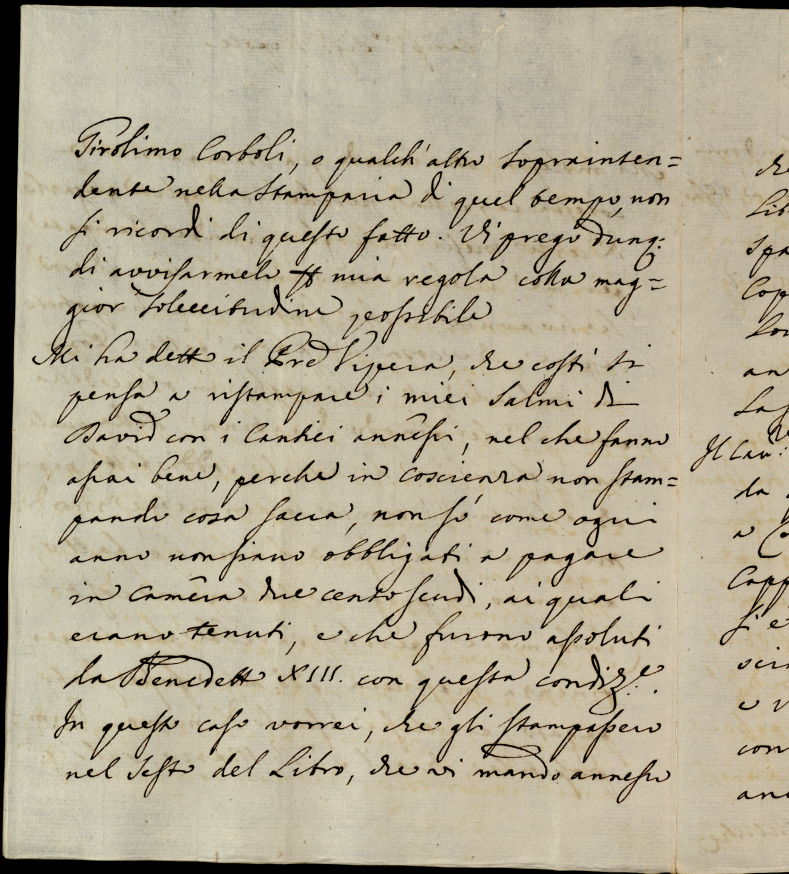 Girolimo Corboli, o qualch'altro soprainten=
dente nella Stamparia di quel tempo, non
si ricordi di questo fatto. Vi prego dunq:
di avvisarmelo per mia regola colla mag=
gior sollecitudine possibile
Mi ha detto il Pre Vipera, che costì si
pensa a ristampare i miei Salmi di
David con i Cantici annessi, nel che fanno
assai bene, perche in coscienza non stam=
pando cosa sacra, non sò come ogni
anno non siano obbligati a pagare
in Camera due cento scudi, ai quali
erano tenuti, e che furono assoluti
da Benedetto XIII. con questa condize.
In questo caso vorrei, che gli stampassero
nel sesto del Libro, che vi mando annesso
che
Lib
spa
Cop
an
Il Cav:
da
a
Capp
si e
sci
e v
con
anc